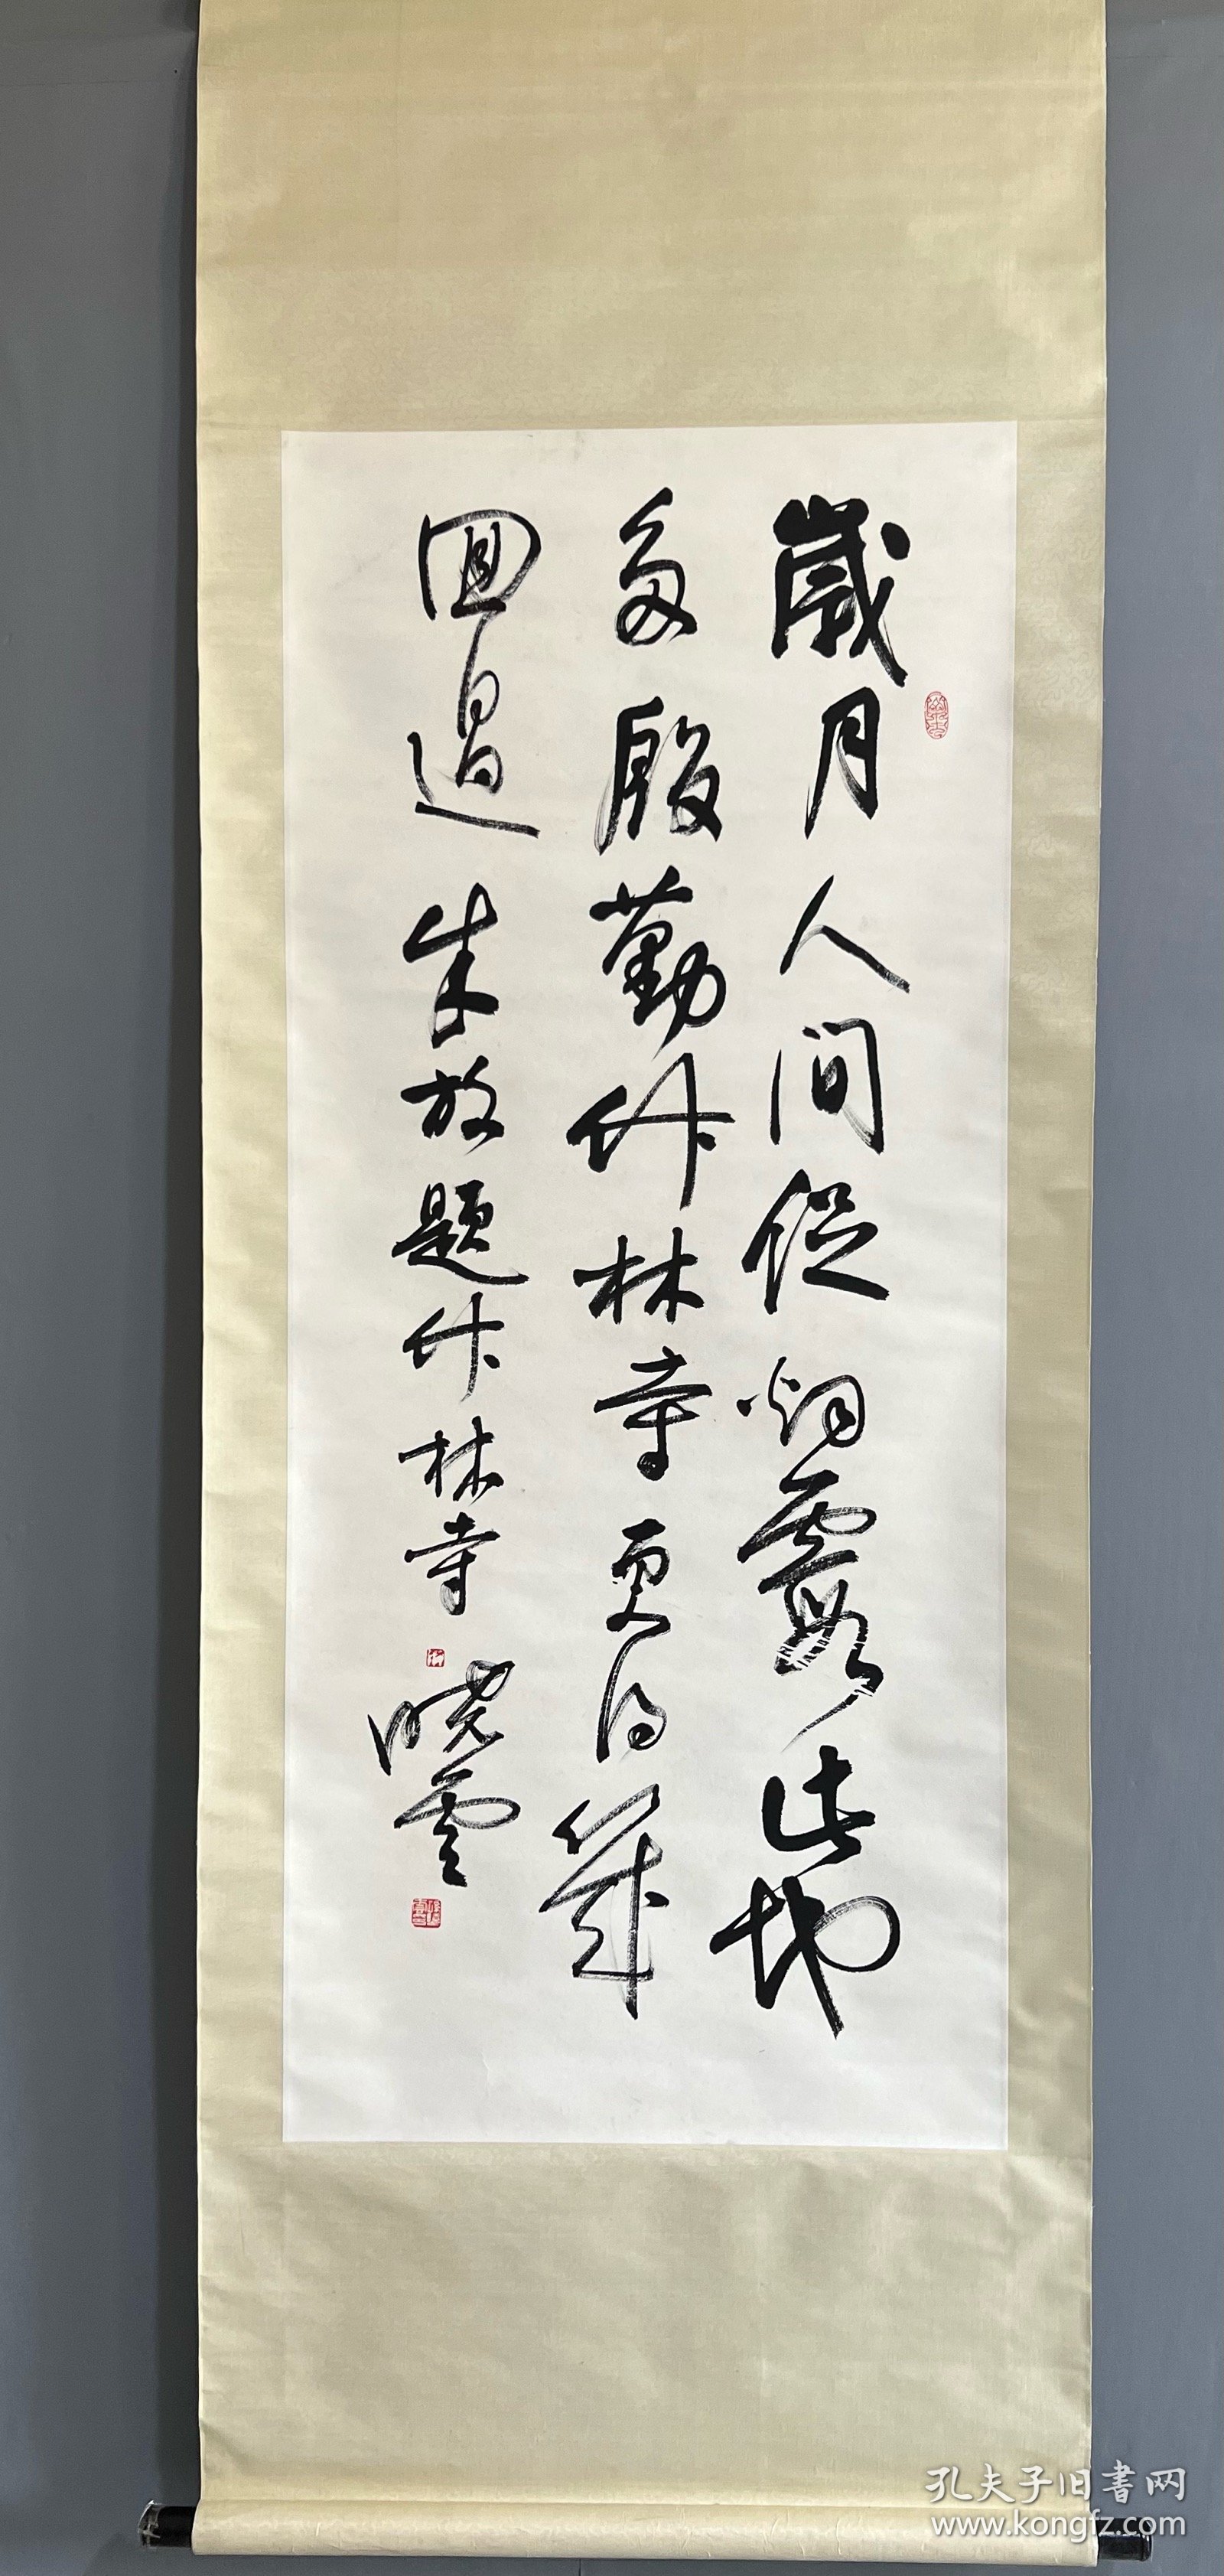 歲月人間促烟霞此地
多殷勤竹林寺更得幾
回過 朱放題竹林寺 晓雲
孔夫子旧書网
www.kongfz.com